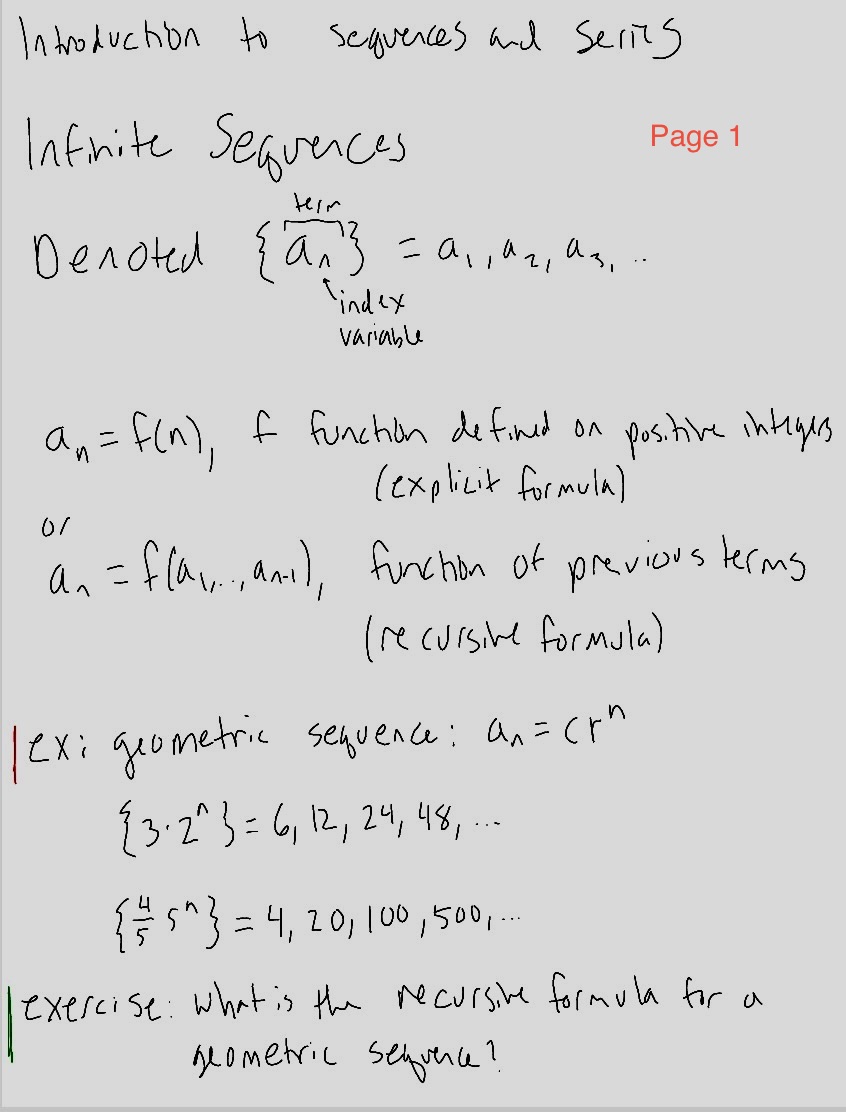 Introduction to sequences and series
Infinite Sequences
Page 1
term
Denoted {aₙ} = a₁, a₂, a₃, ..
index
variable
aₙ = f(n), f function defined on positive integers
(explicit formula)
or
aₙ = f(a₁,..., aₙ₋₁), function of previous terms
(recursive formula)
ex: geometric sequence: aₙ = crⁿ
{3·2ⁿ} = 6, 12, 24, 48, ...
{4/5 5ⁿ} = 4, 20, 100, 500, ...
exercise: what is the recursive formula for a
geometric sequence?